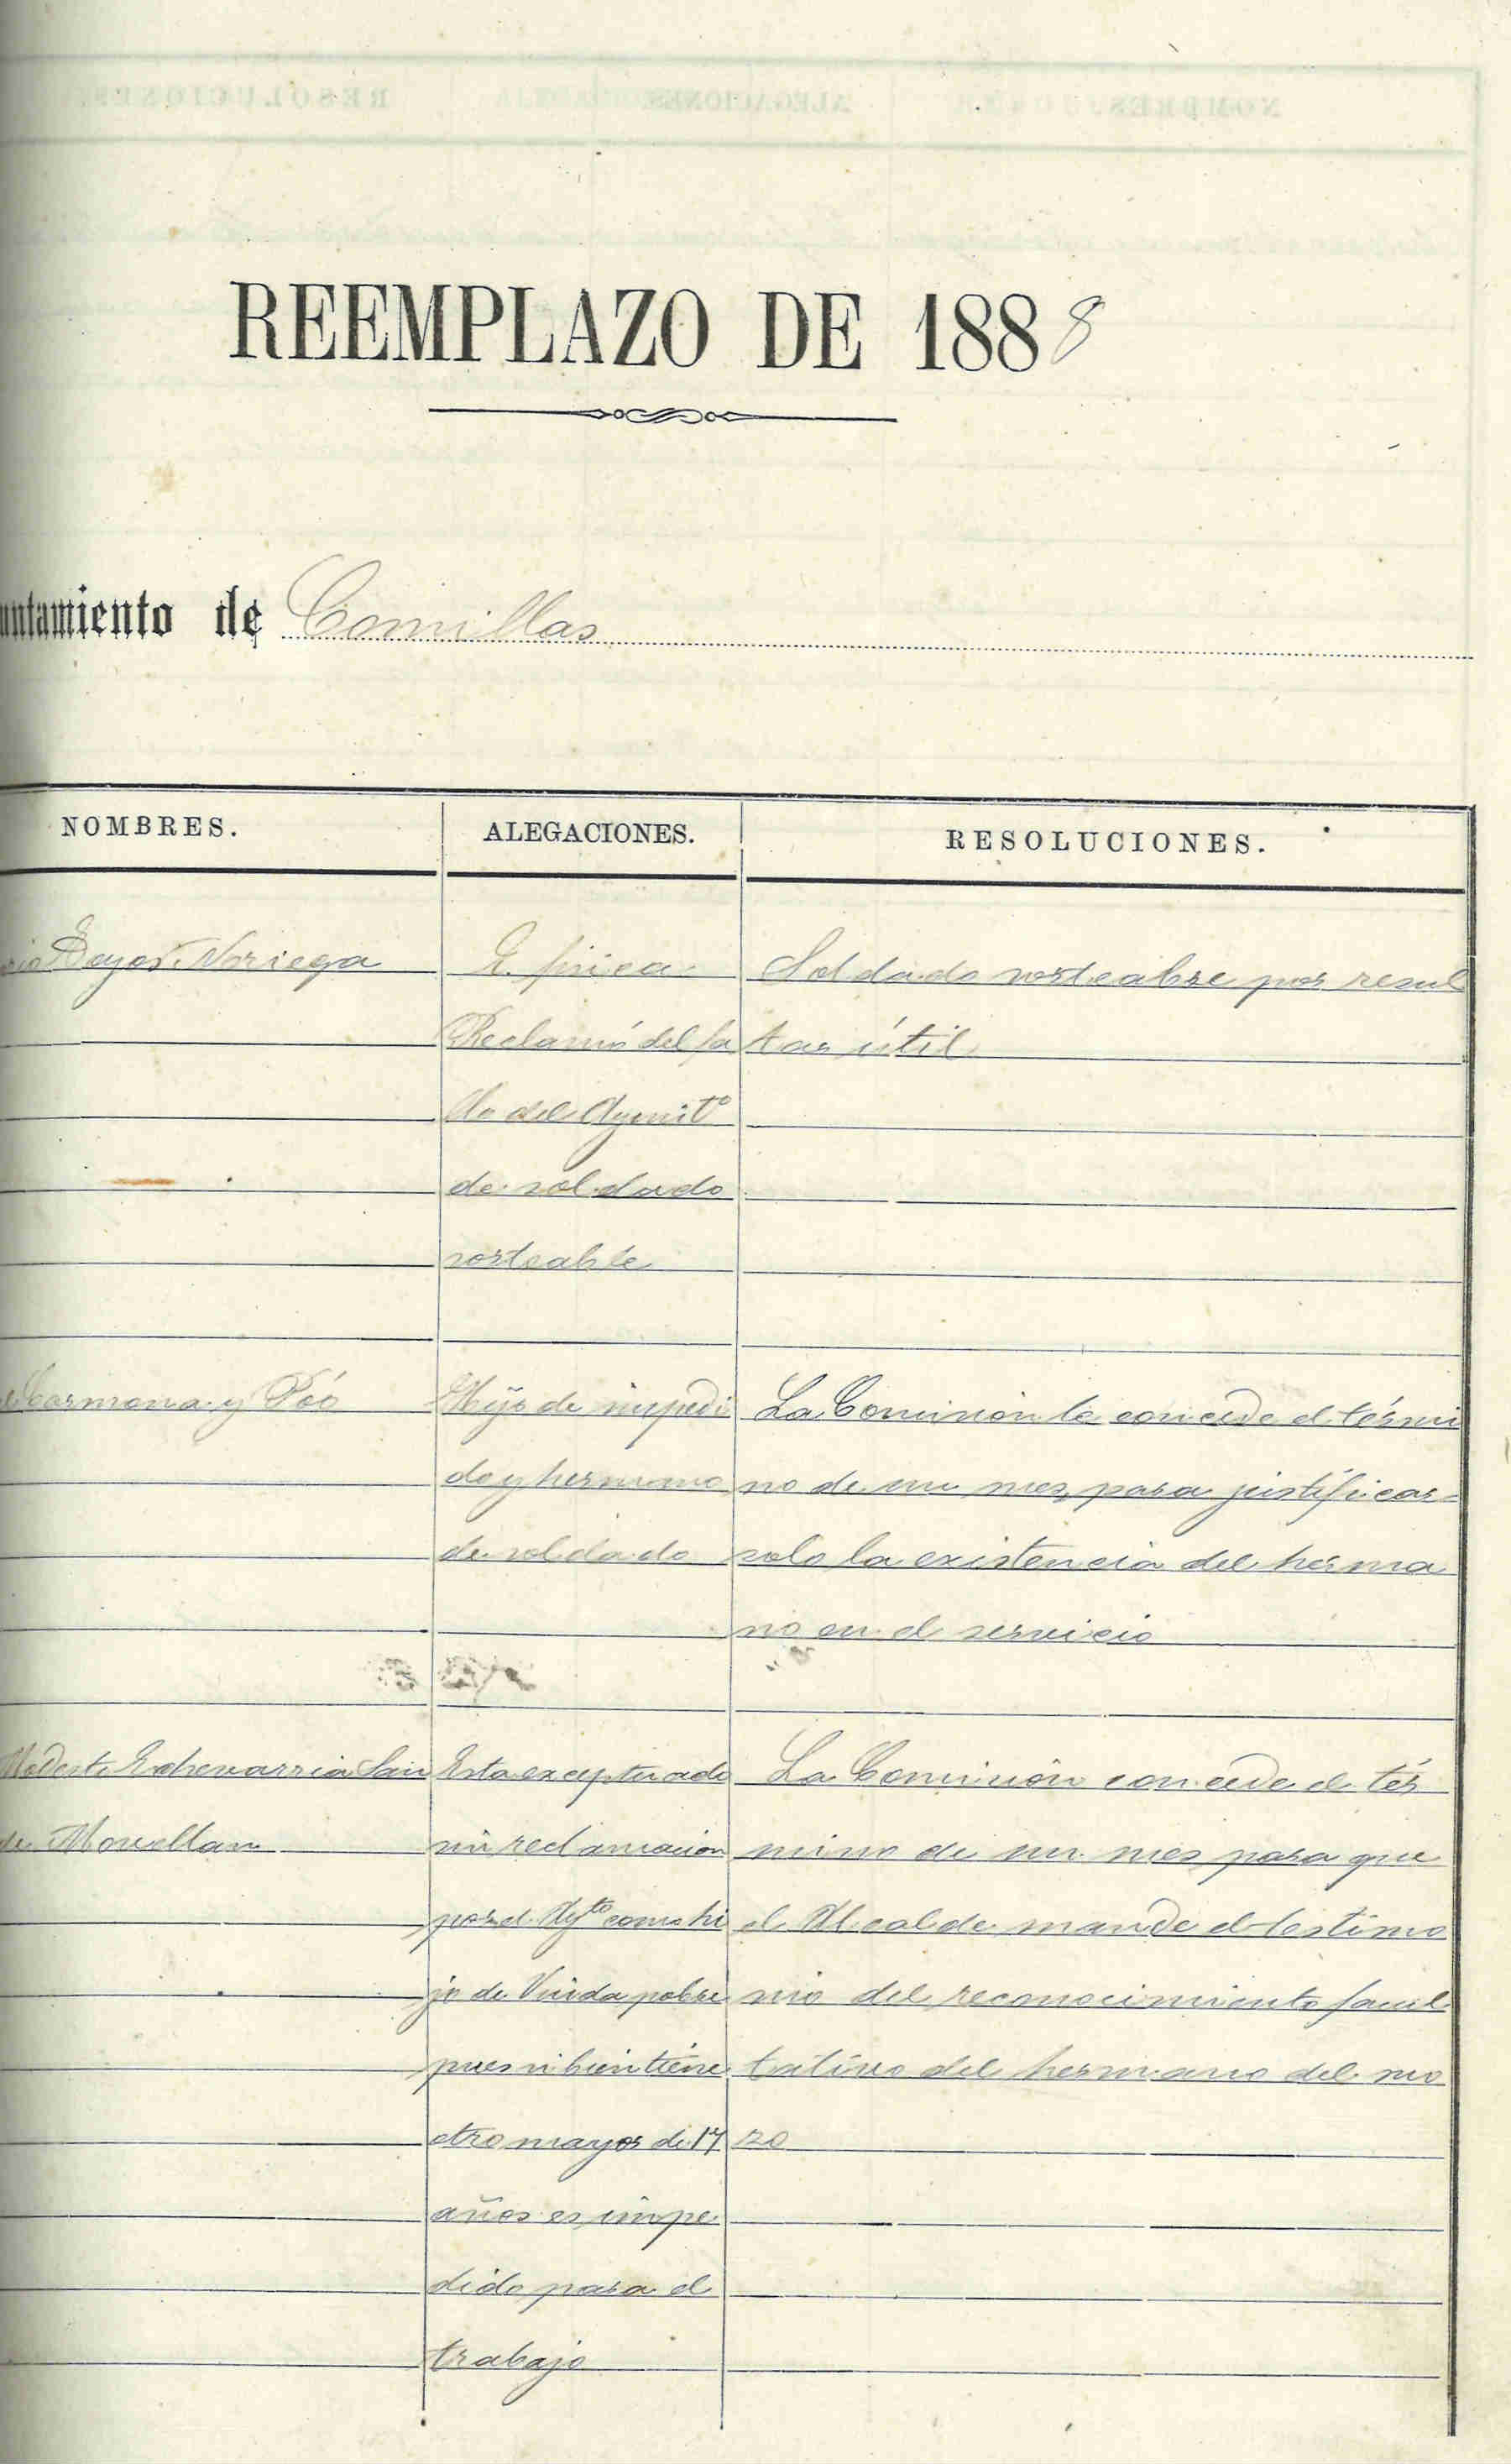 REEMPLAZO DE 1888
untamiento de Comillas
NOMBRES.
ALEGACIONES.
RESOLUCIONES.
rio Hoyos Noriega
E. física
Reclamó del fa
llo del Aymtº
de soldado
sorteable
Soldado sorteable por resul
tar útil
Carmona y Póo
Hijo de impedi
do y hermano
de soldado
La Comision le concede el térmi
no de un mes, para justificar
solo la existencia del herma
no en el servicio
Modesto Echevarria San
de Movellan
Esta exceptuado
sin reclamacion
por el Aytº como hi
jo de Viuda pobre
pues si bien tiene
otro mayor de 17
años es impe
dido para el
trabajo
La Comision concede el tér
mino de un mes para que
el Alcalde mande el testimo
nio del reconocimiento facul
tativo del hermano del mo
zo